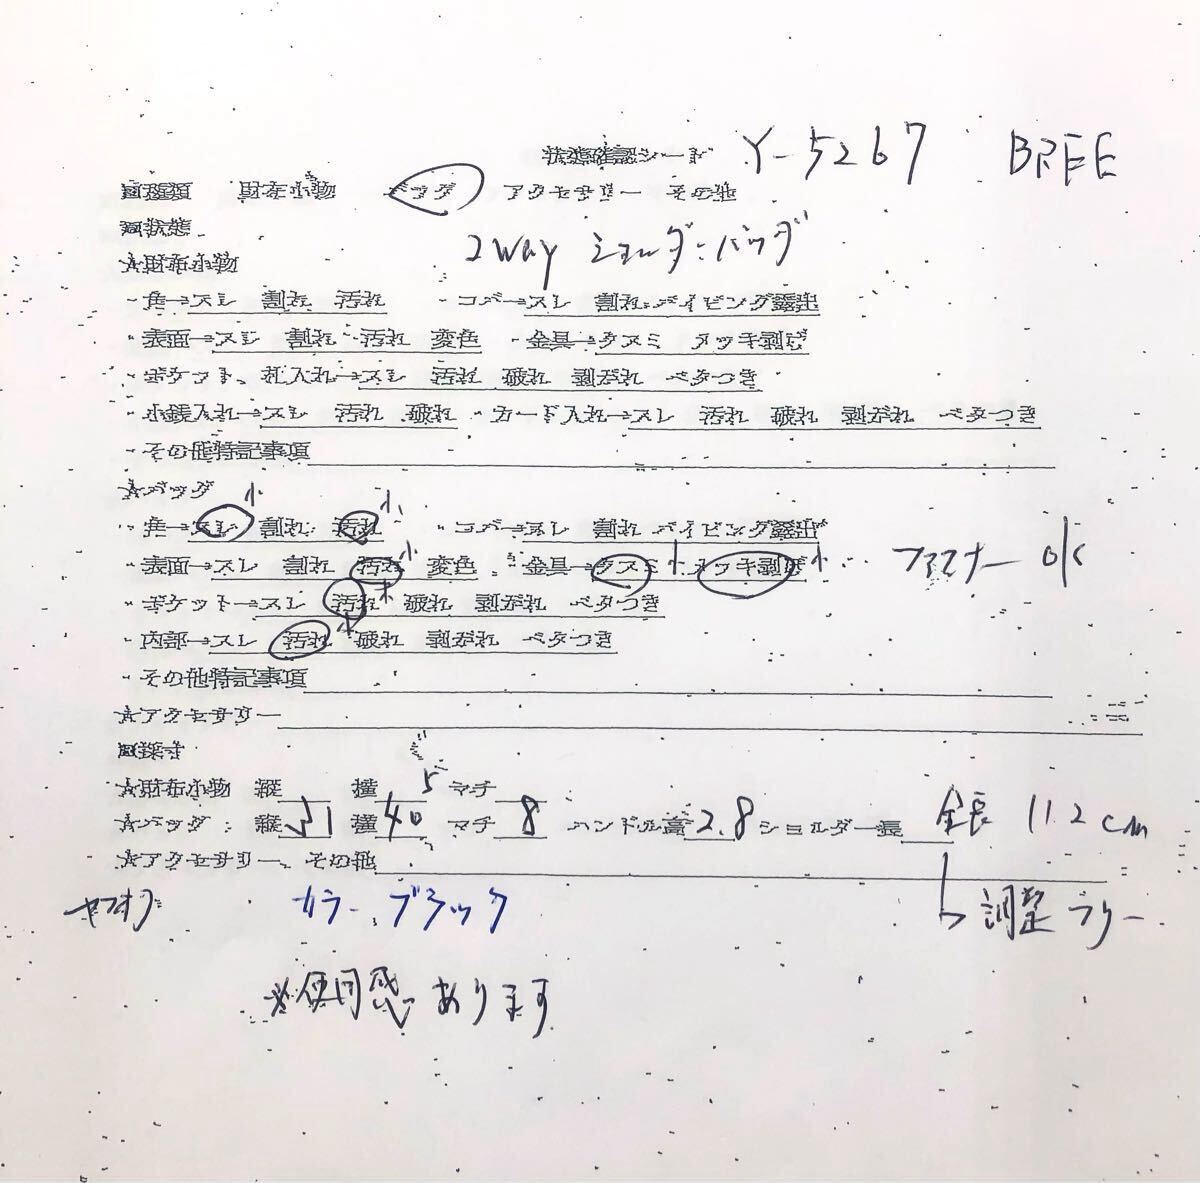 状態確認シート Y-5267 BREE
■種類 財布小物 バッグ アクセサリー その他
■状態 2way ショルダーバッグ
★財布小物
・角→スレ 割れ 汚れ ・コバ→スレ 割れ パイピング露出
・表面→スレ 割れ 汚れ 変色 ・金具→クスミ メッキ剥げ
・ポケット、札入れ→スレ 汚れ 破れ 剥がれ ベタつき
・小銭入れ→スレ 汚れ 破れ ・カード入れ→スレ 汚れ 破れ 剥がれ ベタつき
・その他特記事項
★バッグ
・角→スレ 小 割れ 汚れ 小 ・コバ→スレ 割れ パイピング露出
・表面→スレ 割れ 汚れ 小 変色 ・金具→クスミ 小 メッキ剥げ 小 ファスナー OK
・ポケット→スレ 汚れ 小 破れ 剥がれ ベタつき
・内部→スレ 汚れ 小 破れ 剥がれ ベタつき
・その他特記事項
★アクセサリー
■採寸
★財布小物 縦 横 マチ
★バッグ 縦 31 横 40 マチ 8 ハンドル高 2.8 ショルダー長 全長 112cm
★アクセサリー、その他
ヤフオク カラー ブラック 調整フリー
※使用感あります